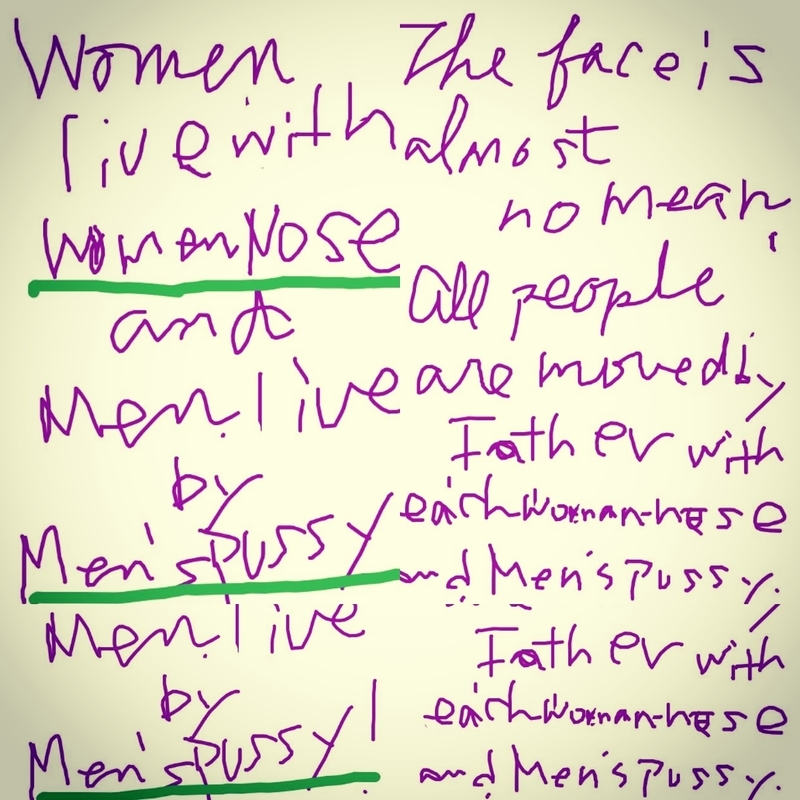 Women
live with
Women Nose
and
Men live
by
Men's pussy
The face is
almost
no mean,
all people
are moved by
Father with
each woman-nose
and Men's pussy.
Men live
by
Men's pussy!
Father with
each woman-nose
and Men's pussy.